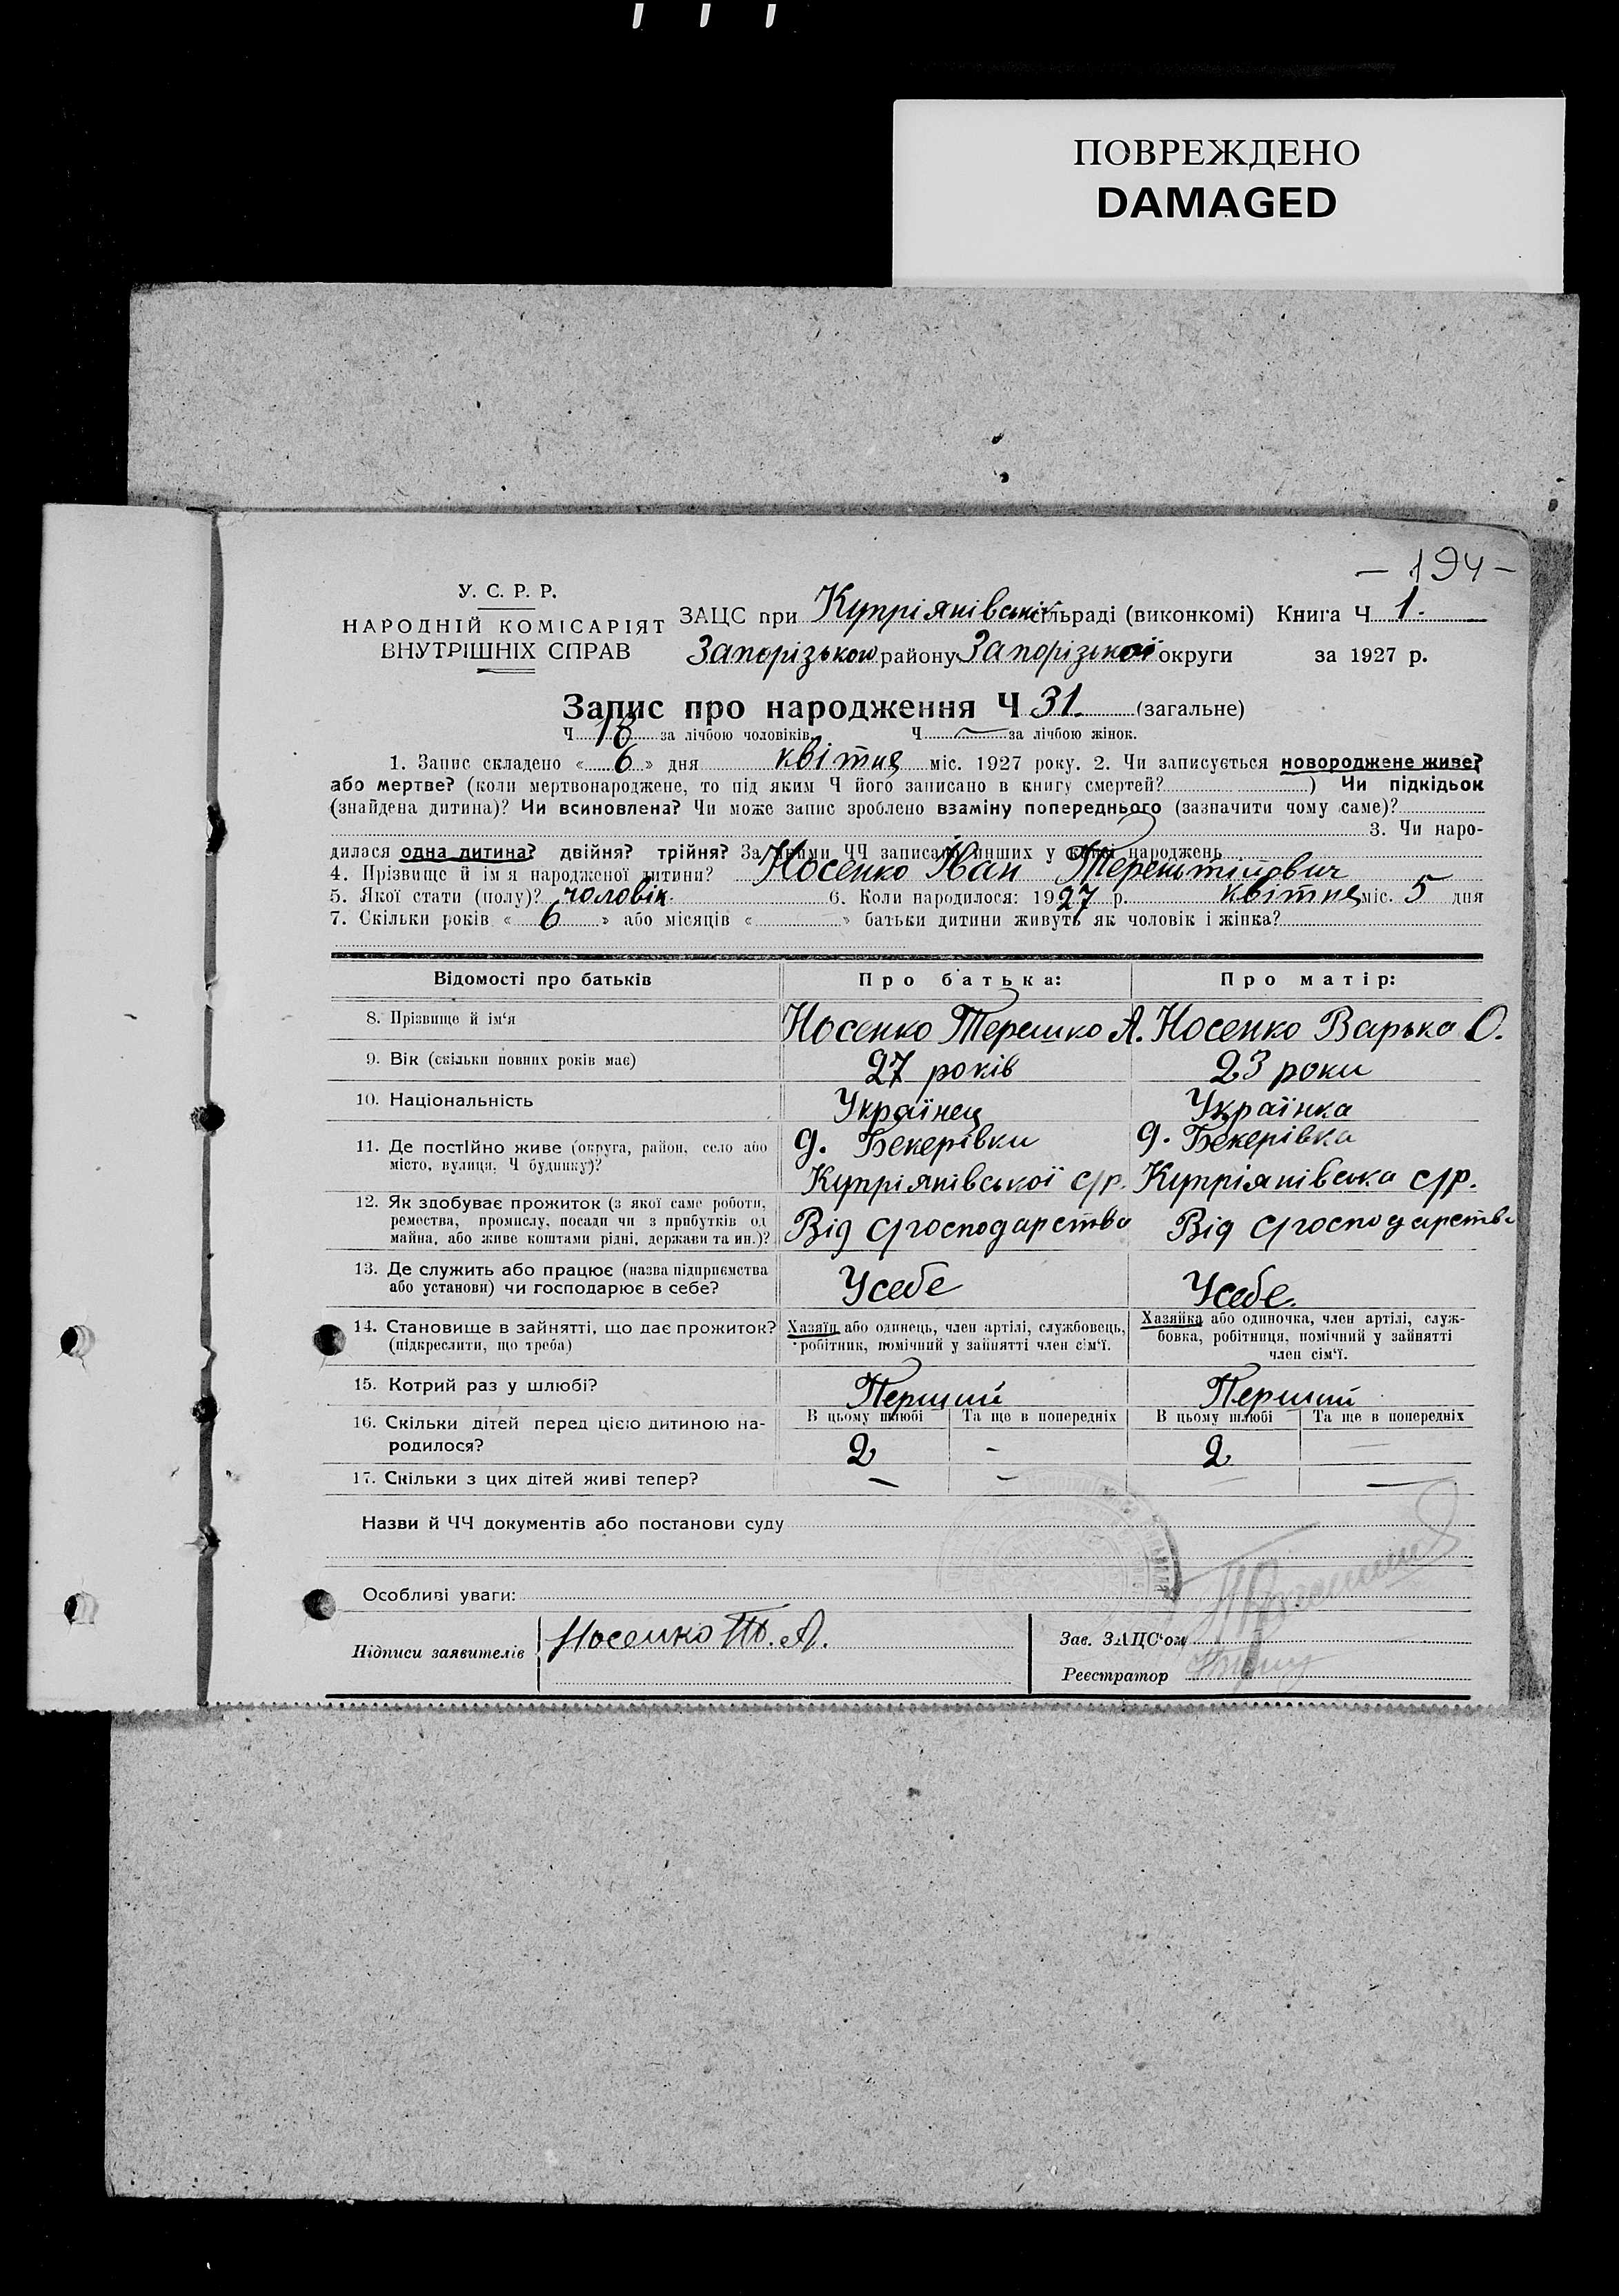 ПОВРЕЖДЕНО
DAMAGED
— 194 —
У. С. Р. Р.
НАРОДНІЙ КОМІСАРІЯТ
ВНУТРІШНІХ СПРАВ
ЗАЦС при Купріянівській сільраді (виконкомі) Книга Ч 1.
Запорізького району Запорізької округи за 1927 р.
Запис про народження Ч 31. (загальне)
Ч 18 за лічбою чоловіків. Ч — за лічбою жінок.
1. Запис складено « 6 » дня квітня міс. 1927 року. 2. Чи записується новороджене живе?
або мертве? (коли мертвонароджене, то під яким Ч його записано в книгу смертей? ) Чи підкідьок
(знайдена дитина)? Чи всиновлена? Чи може запис зроблено взаміну попереднього (зазначити чому саме)?
3. Чи наро-
дилася одна дитина? двійня? трійня? За якими ЧЧ записано инших у книзі народжень
4. Прізвище й ім'я народженої дитини? Носенко Іван Терентійович
5. Якої стати (полу)? чоловік. 6. Коли народилося: 1927 р. квітня міс. 5 дня
7. Скільки років « 6 » або місяців « » батьки дитини живуть як чоловік і жінка?
Відомості про батьків Про батька: Про матір:
8. Прізвище й ім'я Носенко Терешко А. Носенко Варька О.
9. Вік (скільки повних років має) 27 років 23 роки
10. Національність Українец Українка
11. Де постійно живе (округа, район, село або місто, вулиця, Ч будинку)? д. Бекерівки Купріянівської с/р. д. Бекерівка Купріянівська с/р.
12. Як здобуває прожиток (з якої саме роботи, ремества, промислу, посади чи з прибутків од майна, або живе коштами рідні, держави та ин.)? Від с/господарства Від с/господарства
13. Де служить або працює (назва підприємства або установи) чи господарює в себе? Усебе Усебе.
14. Становище в зайнятті, що дає прожиток? (підкреслити, що треба) Хазяїн або одинець, член артілі, службовець, робітник, помічний у зайнятті член сім'ї. Хазяйка або одиночка, член артілі, служ-бовка, робітниця, помічний у зайнятті член сім'ї.
15. Котрий раз у шлюбі? Перший Перший
16. Скільки дітей перед цією дитиною на-родилося? В цьому шлюбі Та ще в попередніх В цьому шлюбі Та ще в попередніх
2 - 2 —
17. Скільки з цих дітей живі тепер? — — — —
Назви й ЧЧ документів або постанови суду
Особливі уваги:
Підписи заявителів Носенко Т. А.
Зав. ЗАЦС'ом
Реєстратор